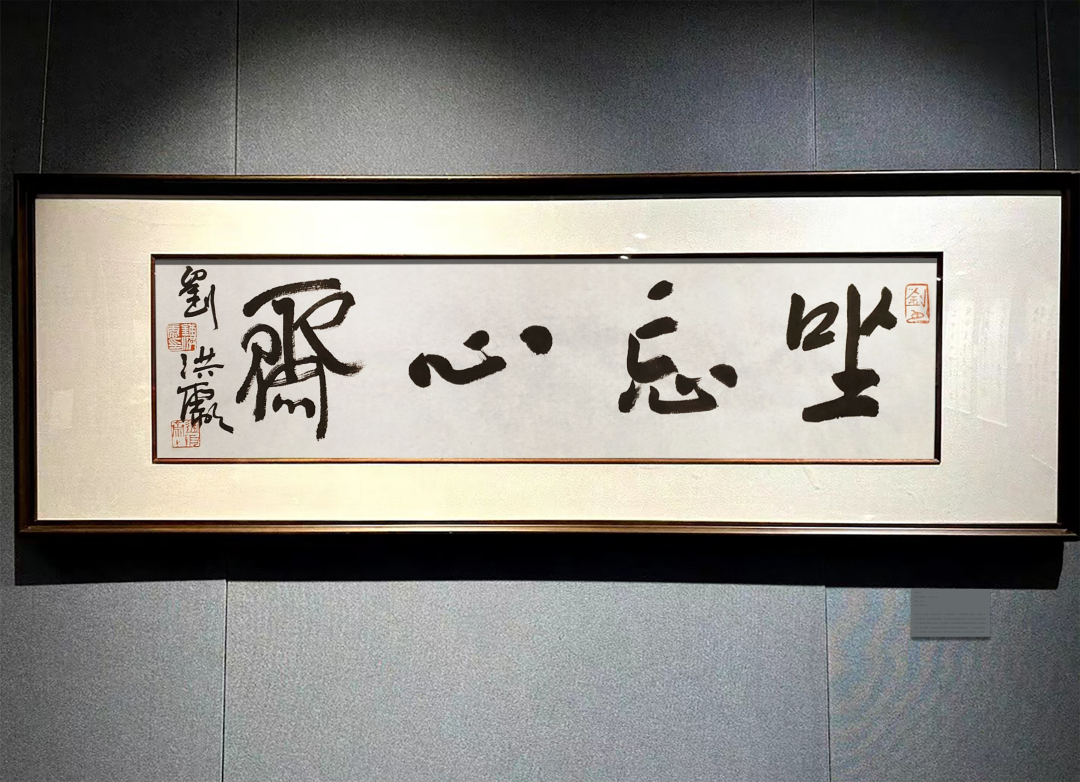 坐忘心齋
劉洪彪